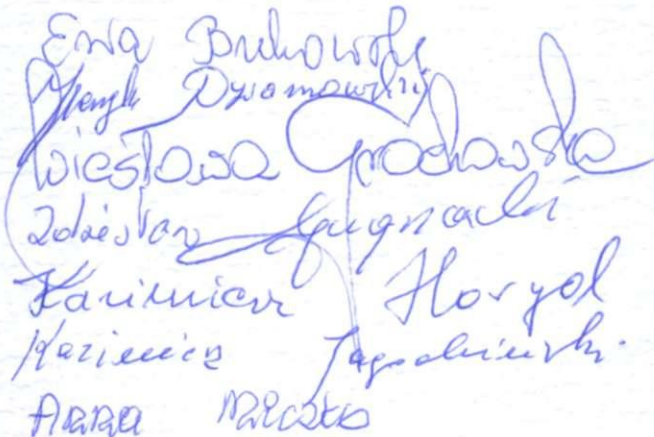 Ewa Bukowska
Henryk Dynamowski
Wiesława Grochowska
Zdzisław
Kazimierz Horyd
Kazimierz Jagodziński
Anna Mleczko